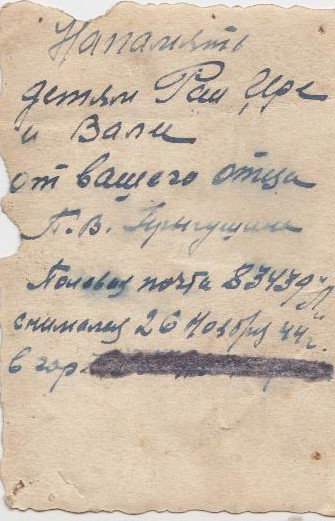 На память
детям Раи Ире
и Вали
от вашего отца
П. В.
Полевая почта 83439 "Л"
снимался 26 ноября 44 г.
в гор